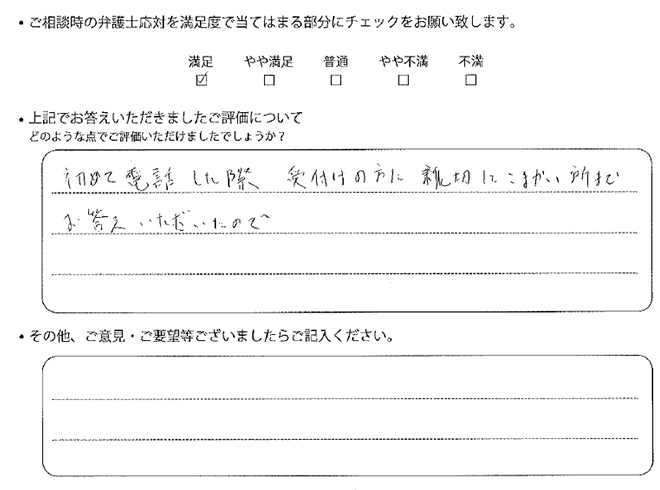 ・ご相談時の弁護士応対を満足度で当てはまる部分にチェックをお願い致します。
満足 やや満足 普通 やや不満 不満
☑ ☐ ☐ ☐ ☐
・上記でお答えいただきましたご評価について
どのような点でご評価いただけましたでしょうか？
初めて電話した際 受付けの方に親切にこまかい所まで
お答えいただいたので
・その他、ご意見・ご要望等ございましたらご記入ください。